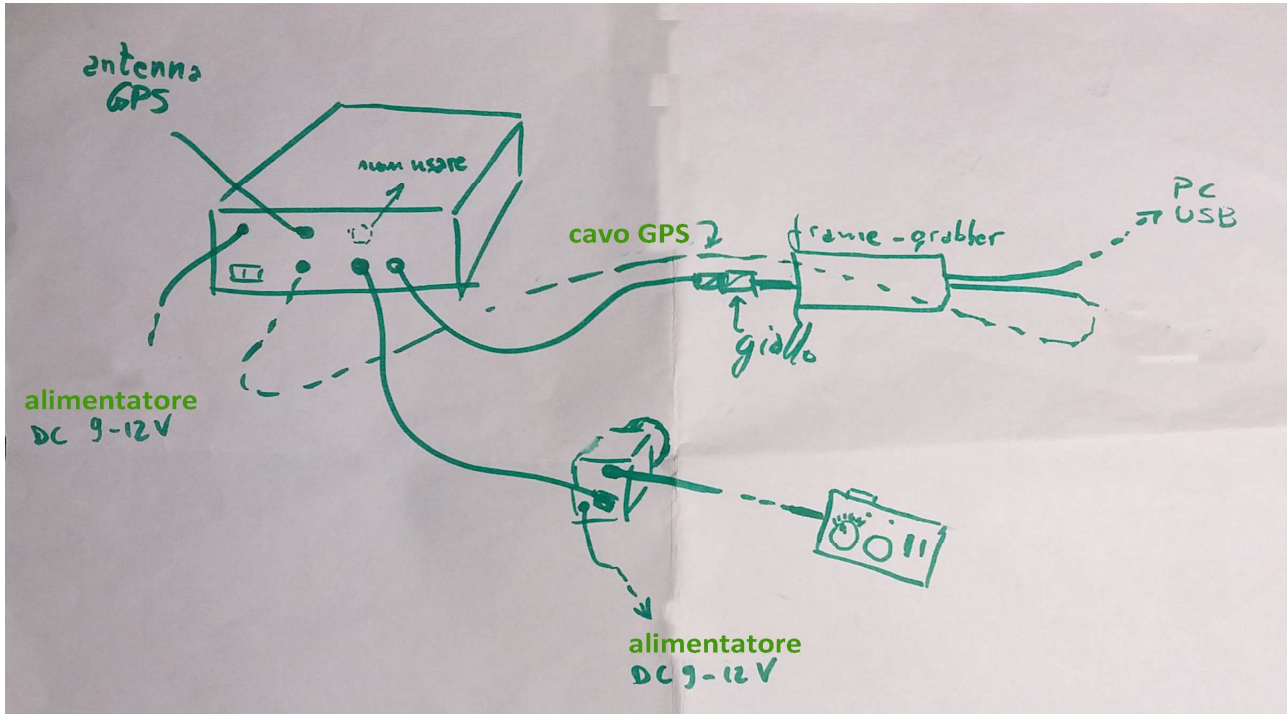 antenna
GPS
non usare
cavo GPS
frame-grabber
PC
USB
giallo
alimentatore
DC 9-12V
alimentatore
DC 9-12V